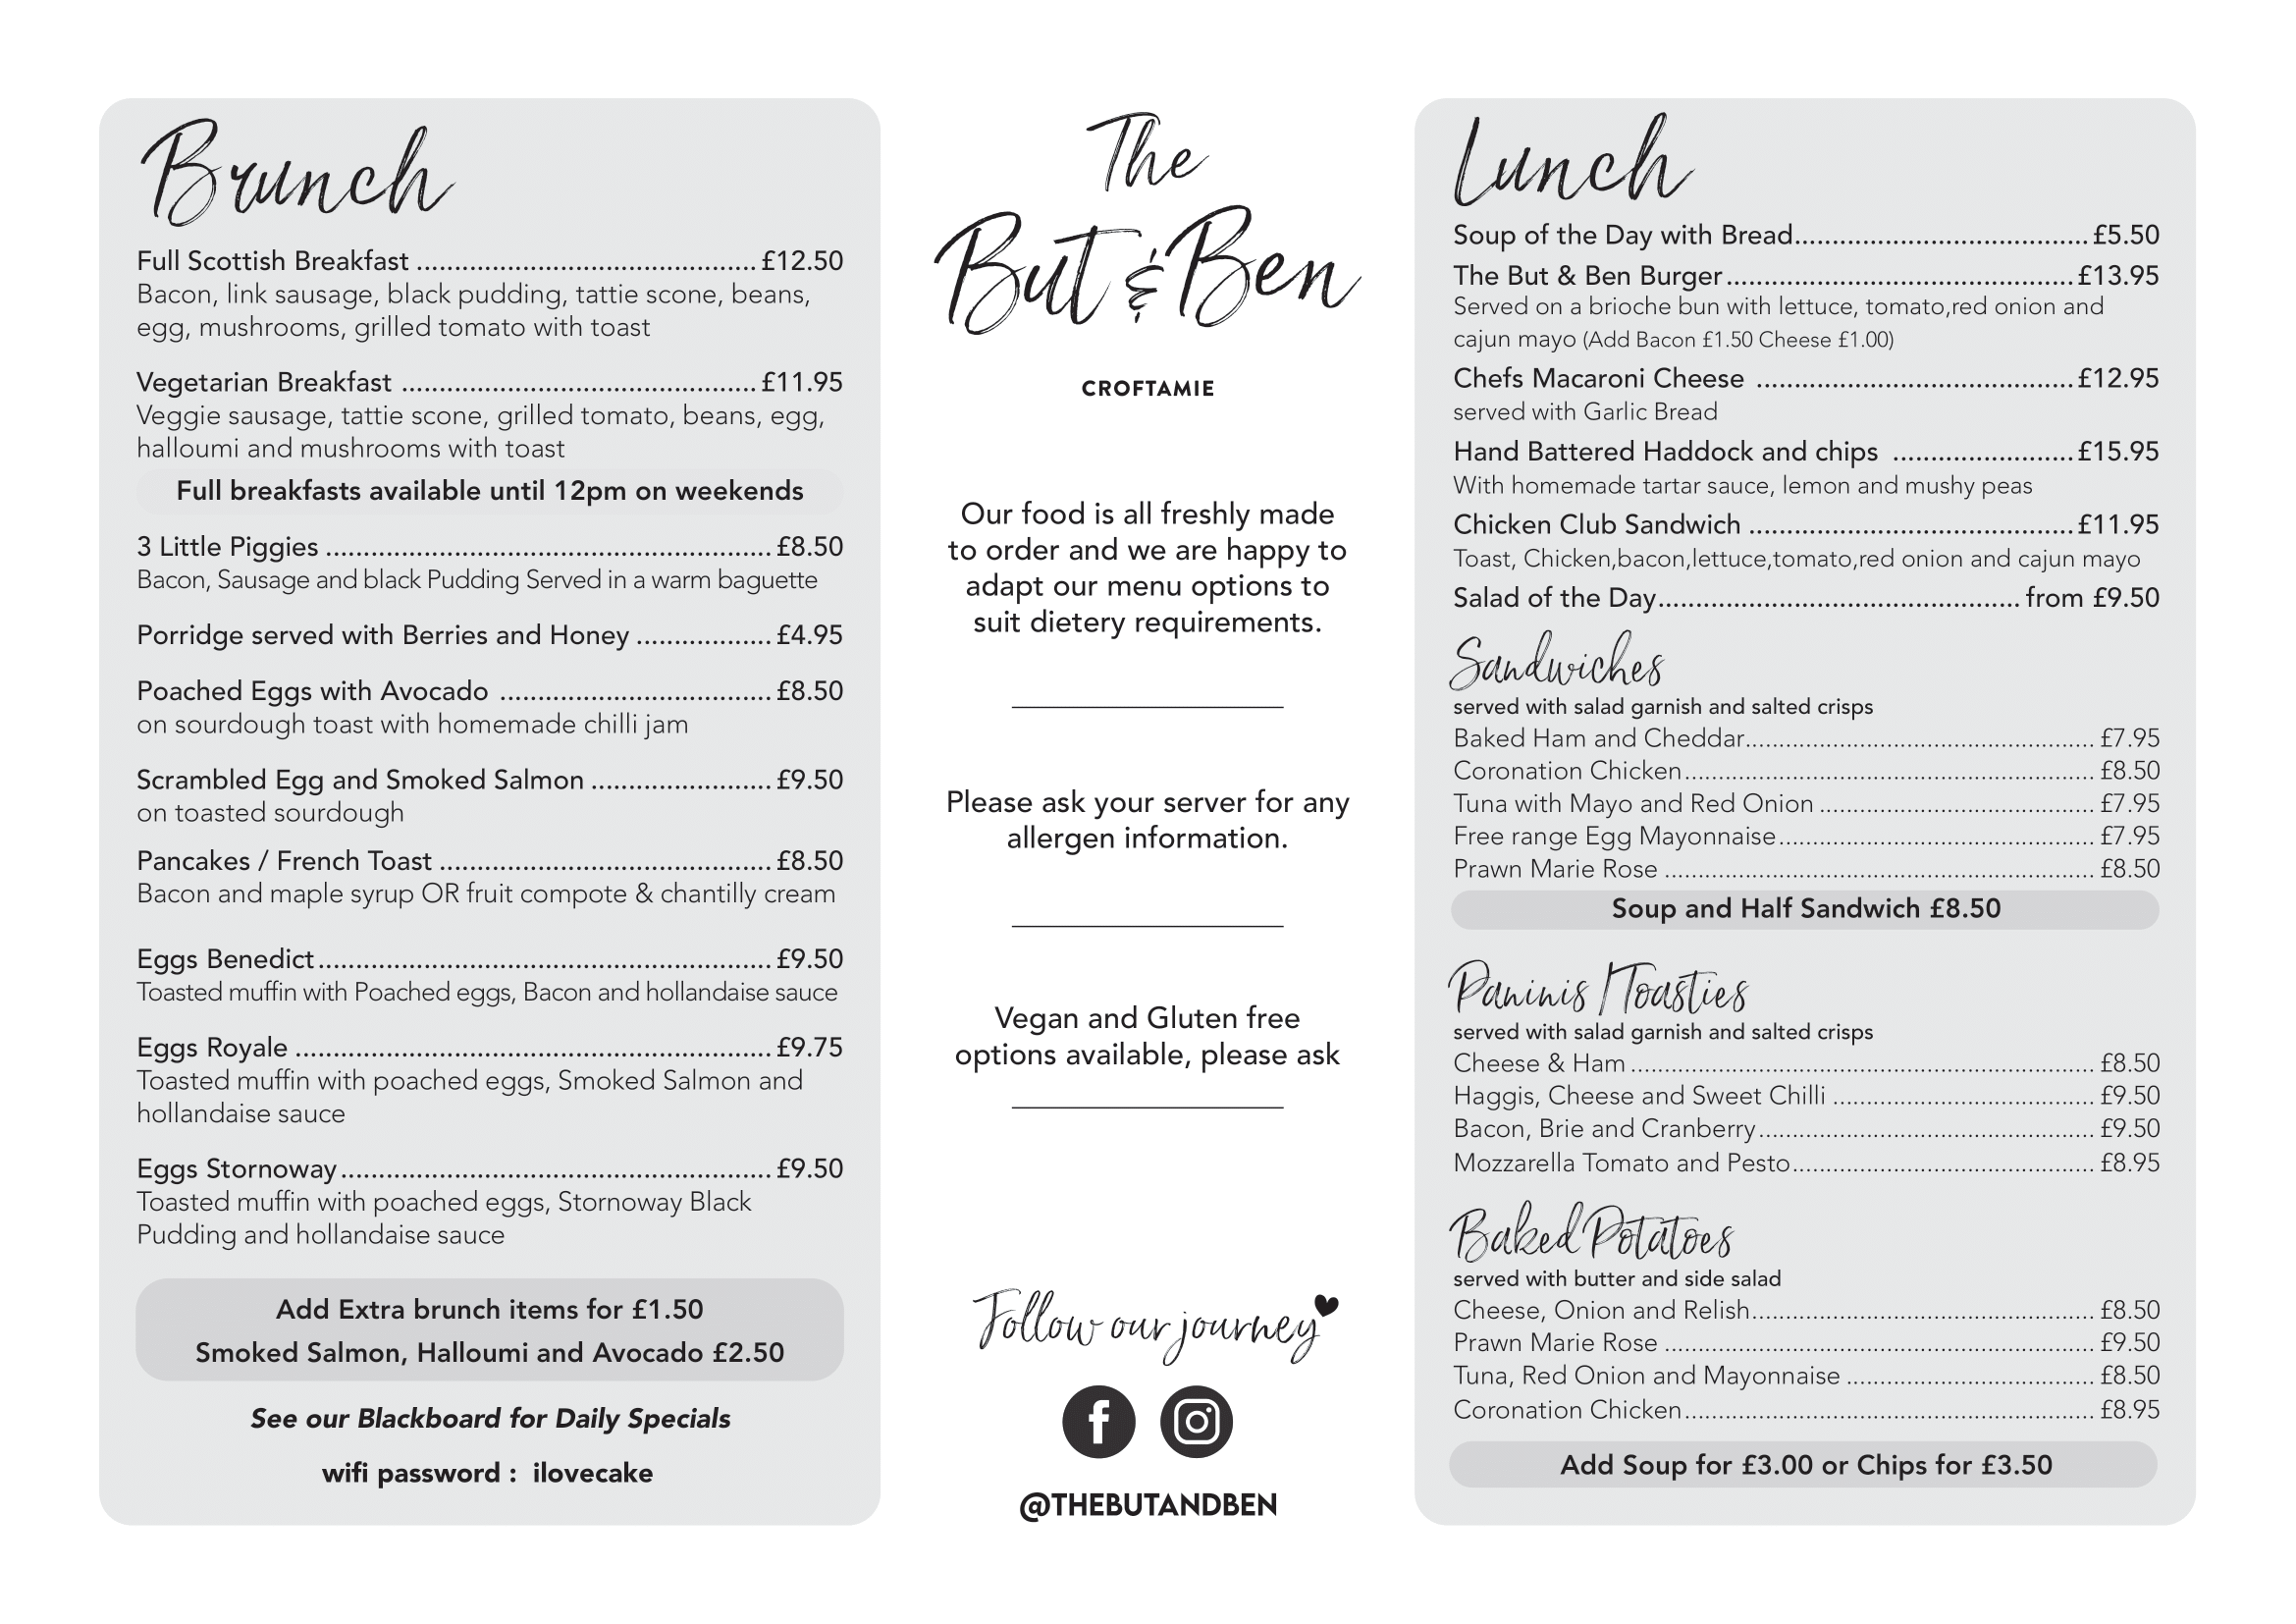 Brunch
Full Scottish Breakfast ............................................. £12.50
Bacon, link sausage, black pudding, tattie scone, beans,
egg, mushrooms, grilled tomato with toast
Vegetarian Breakfast ............................................... £11.95
Veggie sausage, tattie scone, grilled tomato, beans, egg,
halloumi and mushrooms with toast
Full breakfasts available until 12pm on weekends
3 Little Piggies ........................................................... £8.50
Bacon, Sausage and black Pudding Served in a warm baguette
Porridge served with Berries and Honey .................. £4.95
Poached Eggs with Avocado .................................... £8.50
on sourdough toast with homemade chilli jam
Scrambled Egg and Smoked Salmon ........................ £9.50
on toasted sourdough
Pancakes / French Toast ............................................ £8.50
Bacon and maple syrup OR fruit compote & chantilly cream
Eggs Benedict............................................................ £9.50
Toasted muffin with Poached eggs, Bacon and hollandaise sauce
Eggs Royale ............................................................... £9.75
Toasted muffin with poached eggs, Smoked Salmon and
hollandaise sauce
Eggs Stornoway......................................................... £9.50
Toasted muffin with poached eggs, Stornoway Black
Pudding and hollandaise sauce
Add Extra brunch items for £1.50
Smoked Salmon, Halloumi and Avocado £2.50
See our Blackboard for Daily Specials
wifi password : ilovecake
The
But & Ben
CROFTAMIE
Our food is all freshly made
to order and we are happy to
adapt our menu options to
suit dietery requirements.
Please ask your server for any
allergen information.
Vegan and Gluten free
options available, please ask
Follow our journey
@THEBUTANDBEN
Lunch
Soup of the Day with Bread....................................... £5.50
The But & Ben Burger.............................................. £13.95
Served on a brioche bun with lettuce, tomato,red onion and
cajun mayo (Add Bacon £1.50 Cheese £1.00)
Chefs Macaroni Cheese .......................................... £12.95
served with Garlic Bread
Hand Battered Haddock and chips ........................ £15.95
With homemade tartar sauce, lemon and mushy peas
Chicken Club Sandwich ........................................... £11.95
Toast, Chicken,bacon,lettuce,tomato,red onion and cajun mayo
Salad of the Day................................................ from £9.50
Sandwiches
served with salad garnish and salted crisps
Baked Ham and Cheddar.................................................... £7.95
Coronation Chicken............................................................. £8.50
Tuna with Mayo and Red Onion ......................................... £7.95
Free range Egg Mayonnaise............................................... £7.95
Prawn Marie Rose ................................................................ £8.50
Soup and Half Sandwich £8.50
Paninis / Toasties
served with salad garnish and salted crisps
Cheese & Ham ..................................................................... £8.50
Haggis, Cheese and Sweet Chilli ....................................... £9.50
Bacon, Brie and Cranberry.................................................. £9.50
Mozzarella Tomato and Pesto............................................. £8.95
Baked Potatoes
served with butter and side salad
Cheese, Onion and Relish................................................... £8.50
Prawn Marie Rose ................................................................ £9.50
Tuna, Red Onion and Mayonnaise ..................................... £8.50
Coronation Chicken............................................................. £8.95
Add Soup for £3.00 or Chips for £3.50